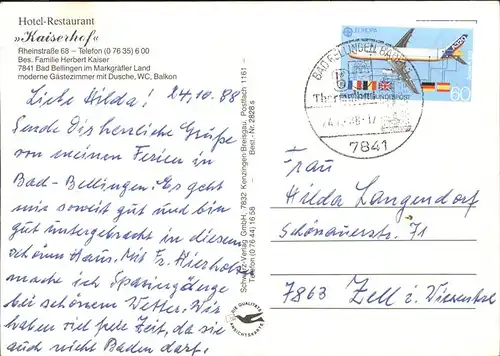 Hotel-Restaurant
»Kaiserhof«
Rheinstraße 68 – Telefon (0 76 35) 6 00
Bes. Familie Herbert Kaiser
7841 Bad Bellingen im Markgräfler Land
moderne Gästezimmer mit Dusche, WC, Balkon
Liebe Hilda! 24.10.88
Sende Dir herrliche Grüße
von meinen Ferien in
Bad-Bellingen. Es geht
mir soweit gut und bin
gut untergebracht in diesem
schönen Haus. Mit Fr.
mache ich Spaziergänge
bei schönem Wetter. Wir
haben viel freie Zeit, da sie
auch nicht Baden darf.
Schwarz-Verlag GmbH · 7832 Kenzingen-Breisgau, Postfach 1161 –
Telefon (0 76 44) 16 88 – Best.-Nr. 2828 s
DIE QUALITÄTS
ANSICHTSKARTE
EUROPA
A320
DEUTSCHE BUNDESPOST
60
BAD BELLINGEN BADEN
7841
Frau
Hilda Langendorf
Schönauerstr. 71
7863 Zell i. Wiesental